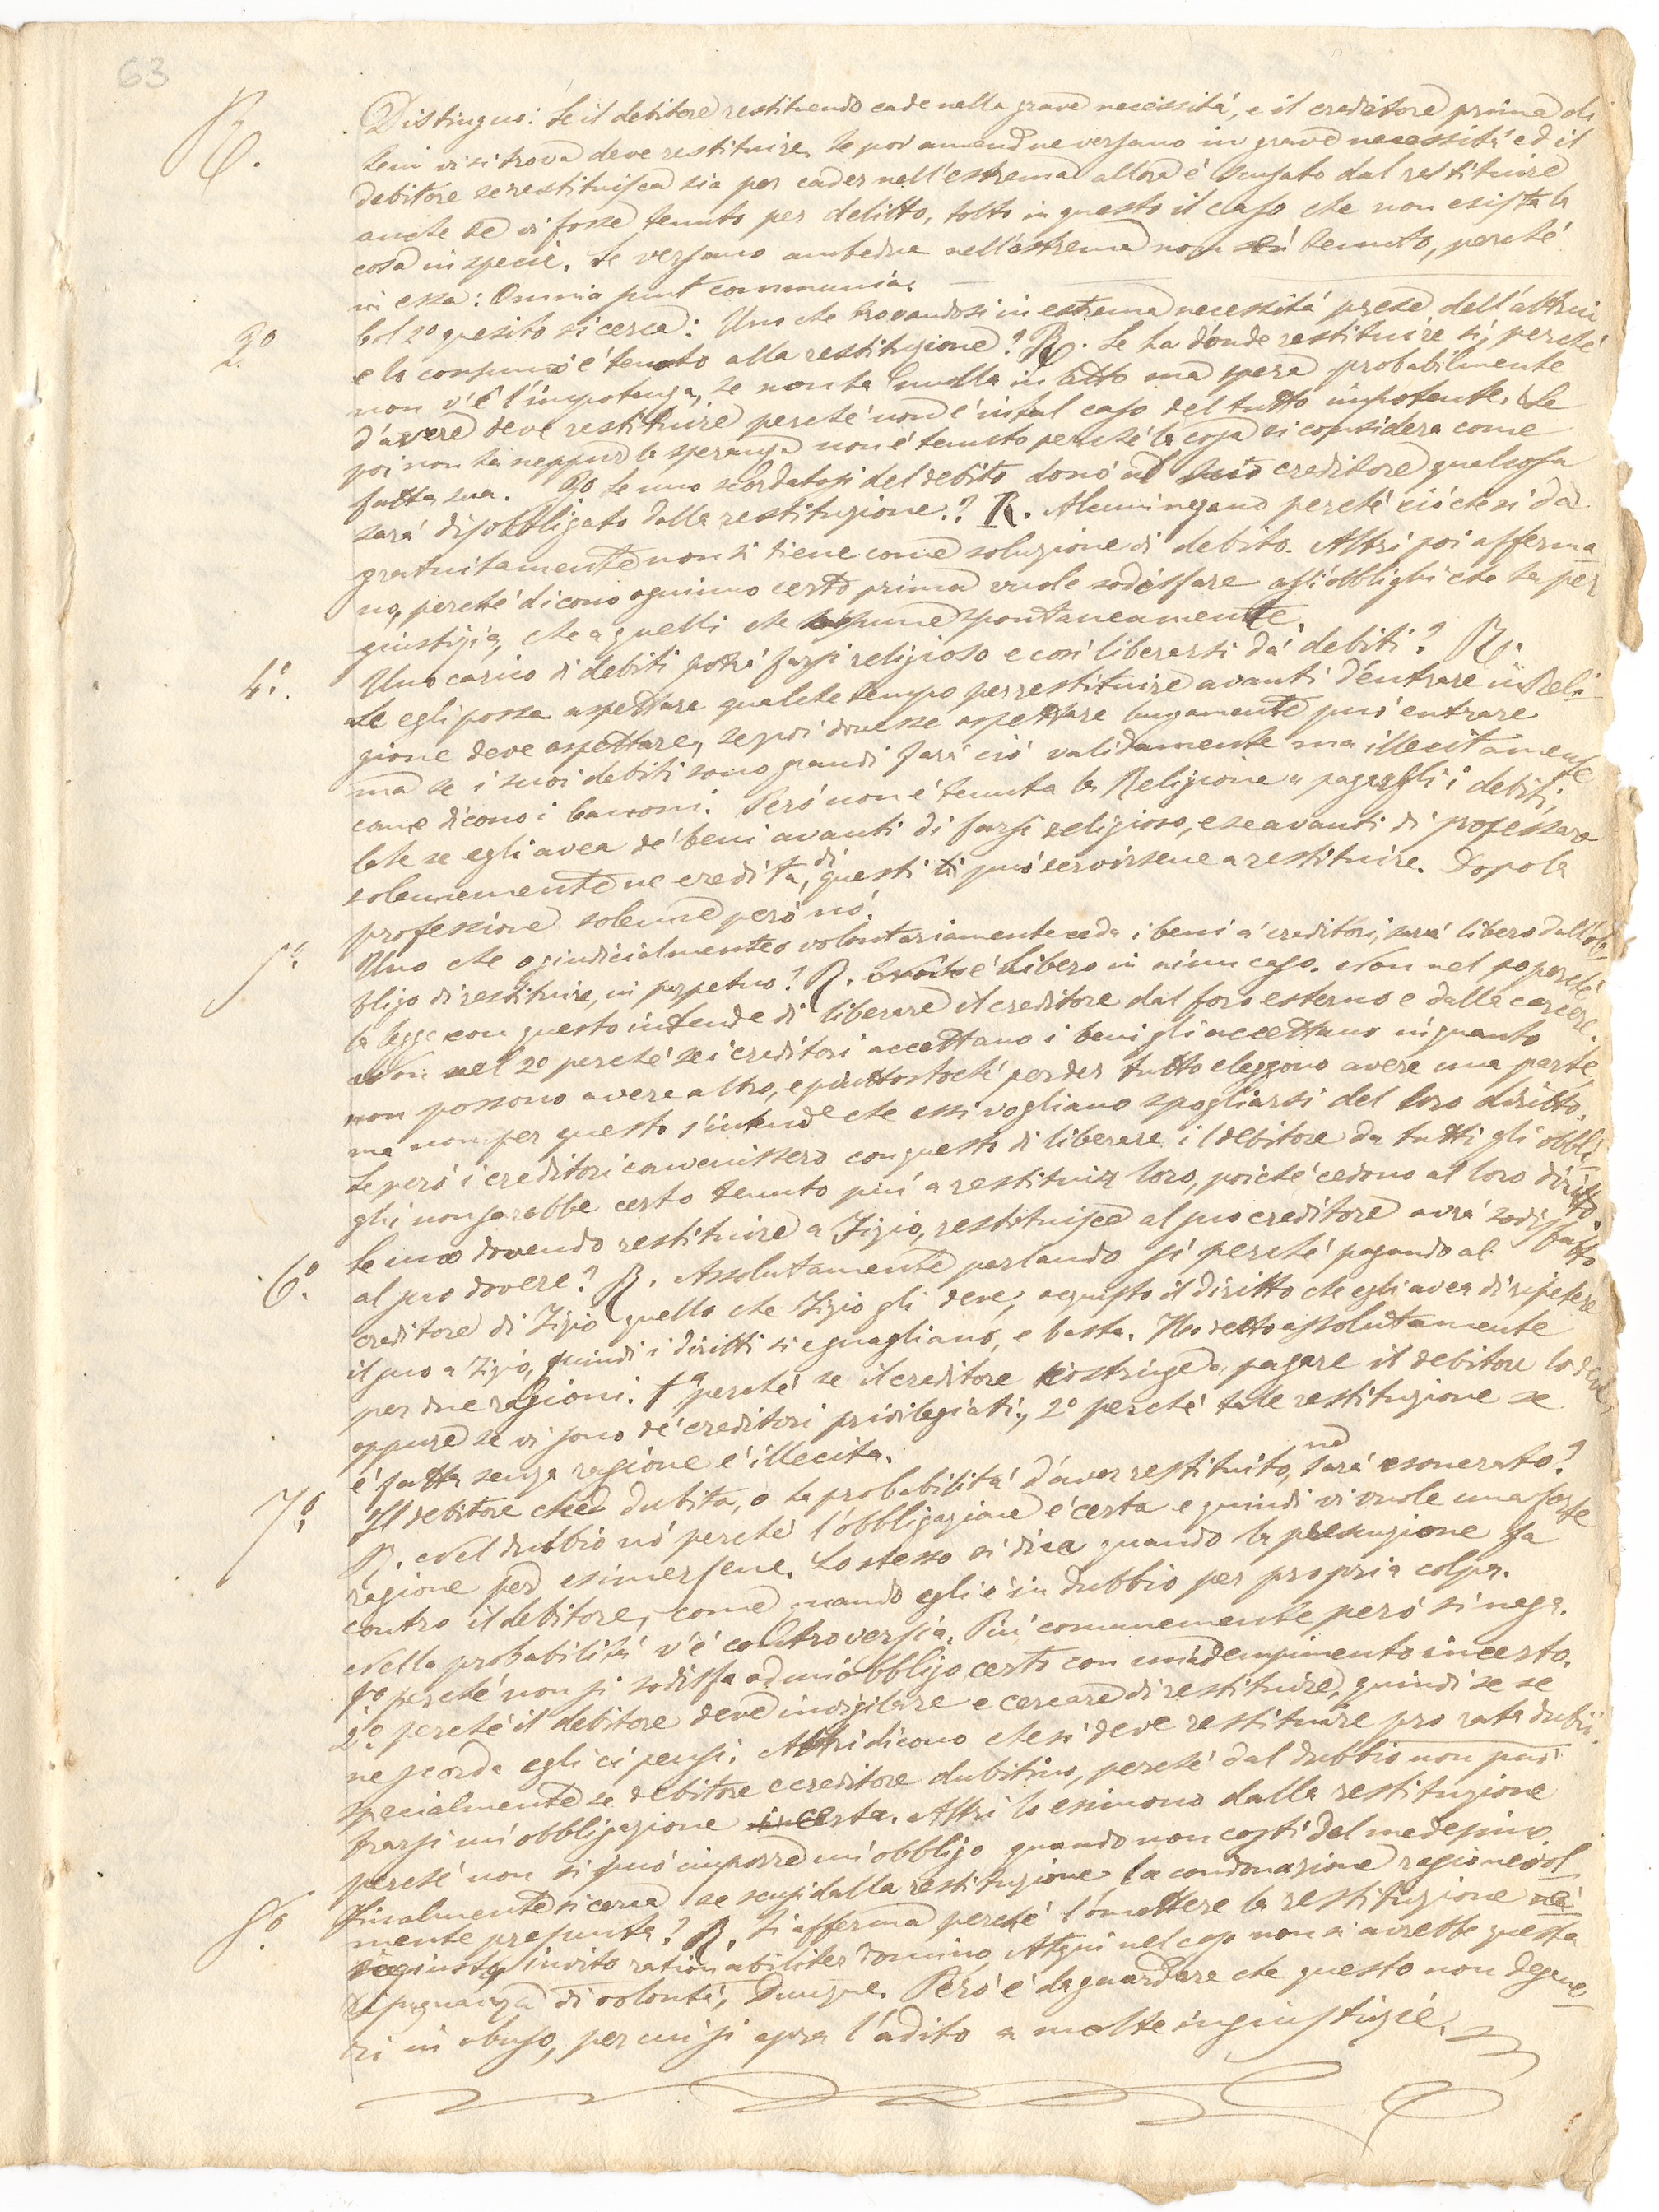 63
R.
Distinguo: Se il debitore restituendo cade nella grave necessitá, e il creditore prima di
lui vi si trova deve restituire. Se poi amendue versano in grave necessitá ed il
debitore se restituisca sia per cader nell'estrema allora é scusato dal restituire
anche se vi fosse tenuto per delitto, tolto in questo il caso che non esista la
cosa in specie. Se versano ambedue nell'estrema non tenuto, perché
in essa: Omnia sunt communia.
2º
Col 2º quesito si cerca: Uno che trovandosi in estrema necessitá prese dell'altrui
e lo consumò é tenuto alla restituzione? R. Se ha dónde restituire sì, perché
non v'é l'impotenza, se non ha nulla in atto ma spera probabilmente
d'avere deve restituire perché non é in tal caso del tutto impotente. Se
poi non ha neppur la speranza non é tenuto perché la cosa si considera come
fatta sua. 3º Se uno scordatosi del debito donó al suo creditore qualcosa
sará disobbligato dalla restituzione? R. Alcuni negano perché ció che si da
gratuitamente non si tiene come soluzione di debito. Altri poi afferma
no, perché dicono ognuno certo prima vuole sodisfare agl'obblighi che ha per
giustizia, che a quelli che assume spontaneamente.
4º.
Uno carico di debiti potrá farsi religioso e cosí liberarsi dá debiti? R.
Se egli possa aspettare qualche tempo per restituire avanti d'entrare in Reli-
gione deve aspettare, se poi dovesse aspettare lungamente può entrare
ma se i suoi debiti sono grandi fará ció validamente ma illecitamente
come dicono i Canoni. Peró non é tenuta la Religione a pagargli i debiti,
che se egli avea dé beni avanti di farsi religioso, e se avanti di professare
solennemente ne eredita, di questi può servirsene a restituire. Dopo la
professione solenne peró nó.
5º.
Uno che o giudicialmente o volontariamente ceda i beni á creditori, sará libero dall'ob-
bligo di restituire, in perpetuo? R. é libero in niun caso. Non nel pº perché
la legge con questo intende di liberare il creditore dal foro esterno e dalla carcere.
Non nel 2º perché se i creditori accettano i beni gli accettano in quanto
non possono avere altro, e piuttostoché perder tutto eleggono avere una parte,
ma non per questo s'intende che essi vogliano spogliarsi del loro diritto.
Se peró i creditori convenissero con questo di liberare il debitore da tutti gli obbli-
ghi non sarebbe certo tenuto piú a restituir loro, poiché cedono al loro diritto.
6º.
Se uno dovendo restituire a Tizio, restituisce al suo creditore avrá sodisfatto
al suo dovere? R. Assolutamente parlando sì perché pagando al
creditore di Tizio quello che Tizio gli deve, acquisto il diritto che egli avea di ripetere
il suo a Tizio, quindi i diritti si eguagliano, e basta. Ho detto assolutamente
per due ragioni. 1ª perché se il creditore costringe a pagare il debitore lo deve,
oppure se vi sono dé creditori privilegiati, 2º perché tale restituzione se
é fatta senza ragione é illecita.
7º.
Il debitore che dubita, o ha probabilitá d'aver restituito, ne sará esonerato?
R. Nel dubbio nó perché l'obbligazione é certa e quindi vi vuole una forte
ragione per esimersene. Lo stesso si dica quando la presunzione sta
contro il debitore, come quando egli é in dubbio per propria colpa.
Nella probabilitá v'é controversia. Piú comunemente peró si nega.
1º perché non si sodisfa ad un'obbligo certo con un'adempimento incerto.
2º perché il debitore deve invigilare e cercare di restituire, quindi se se
ne scorda egli ci pensi. Altri dicono che si deve restituire pro rata dubii
specialmente se debitore e creditore dubitino, perché dal dubbio non può
trarsi un'obbligazione certa. Altri lo esimono dalla restituzione
perché non si può imporre un'obbligo quando non costi del medesimo.
8º.
Finalmente si cerca se scusi dalla restituzione la condonazione ragionevol-
mente presunta? R. Si afferma perché l'omettere la restituzione é
ingiusto, invito rationabiliter domino, Atqui nel caso non si avrebbe questa
ripugnanza di volontá, Dunque. Peró é da guardare che questo non degene-
ri in abuso, per cui si apra l'adito a molte ingiustizie.